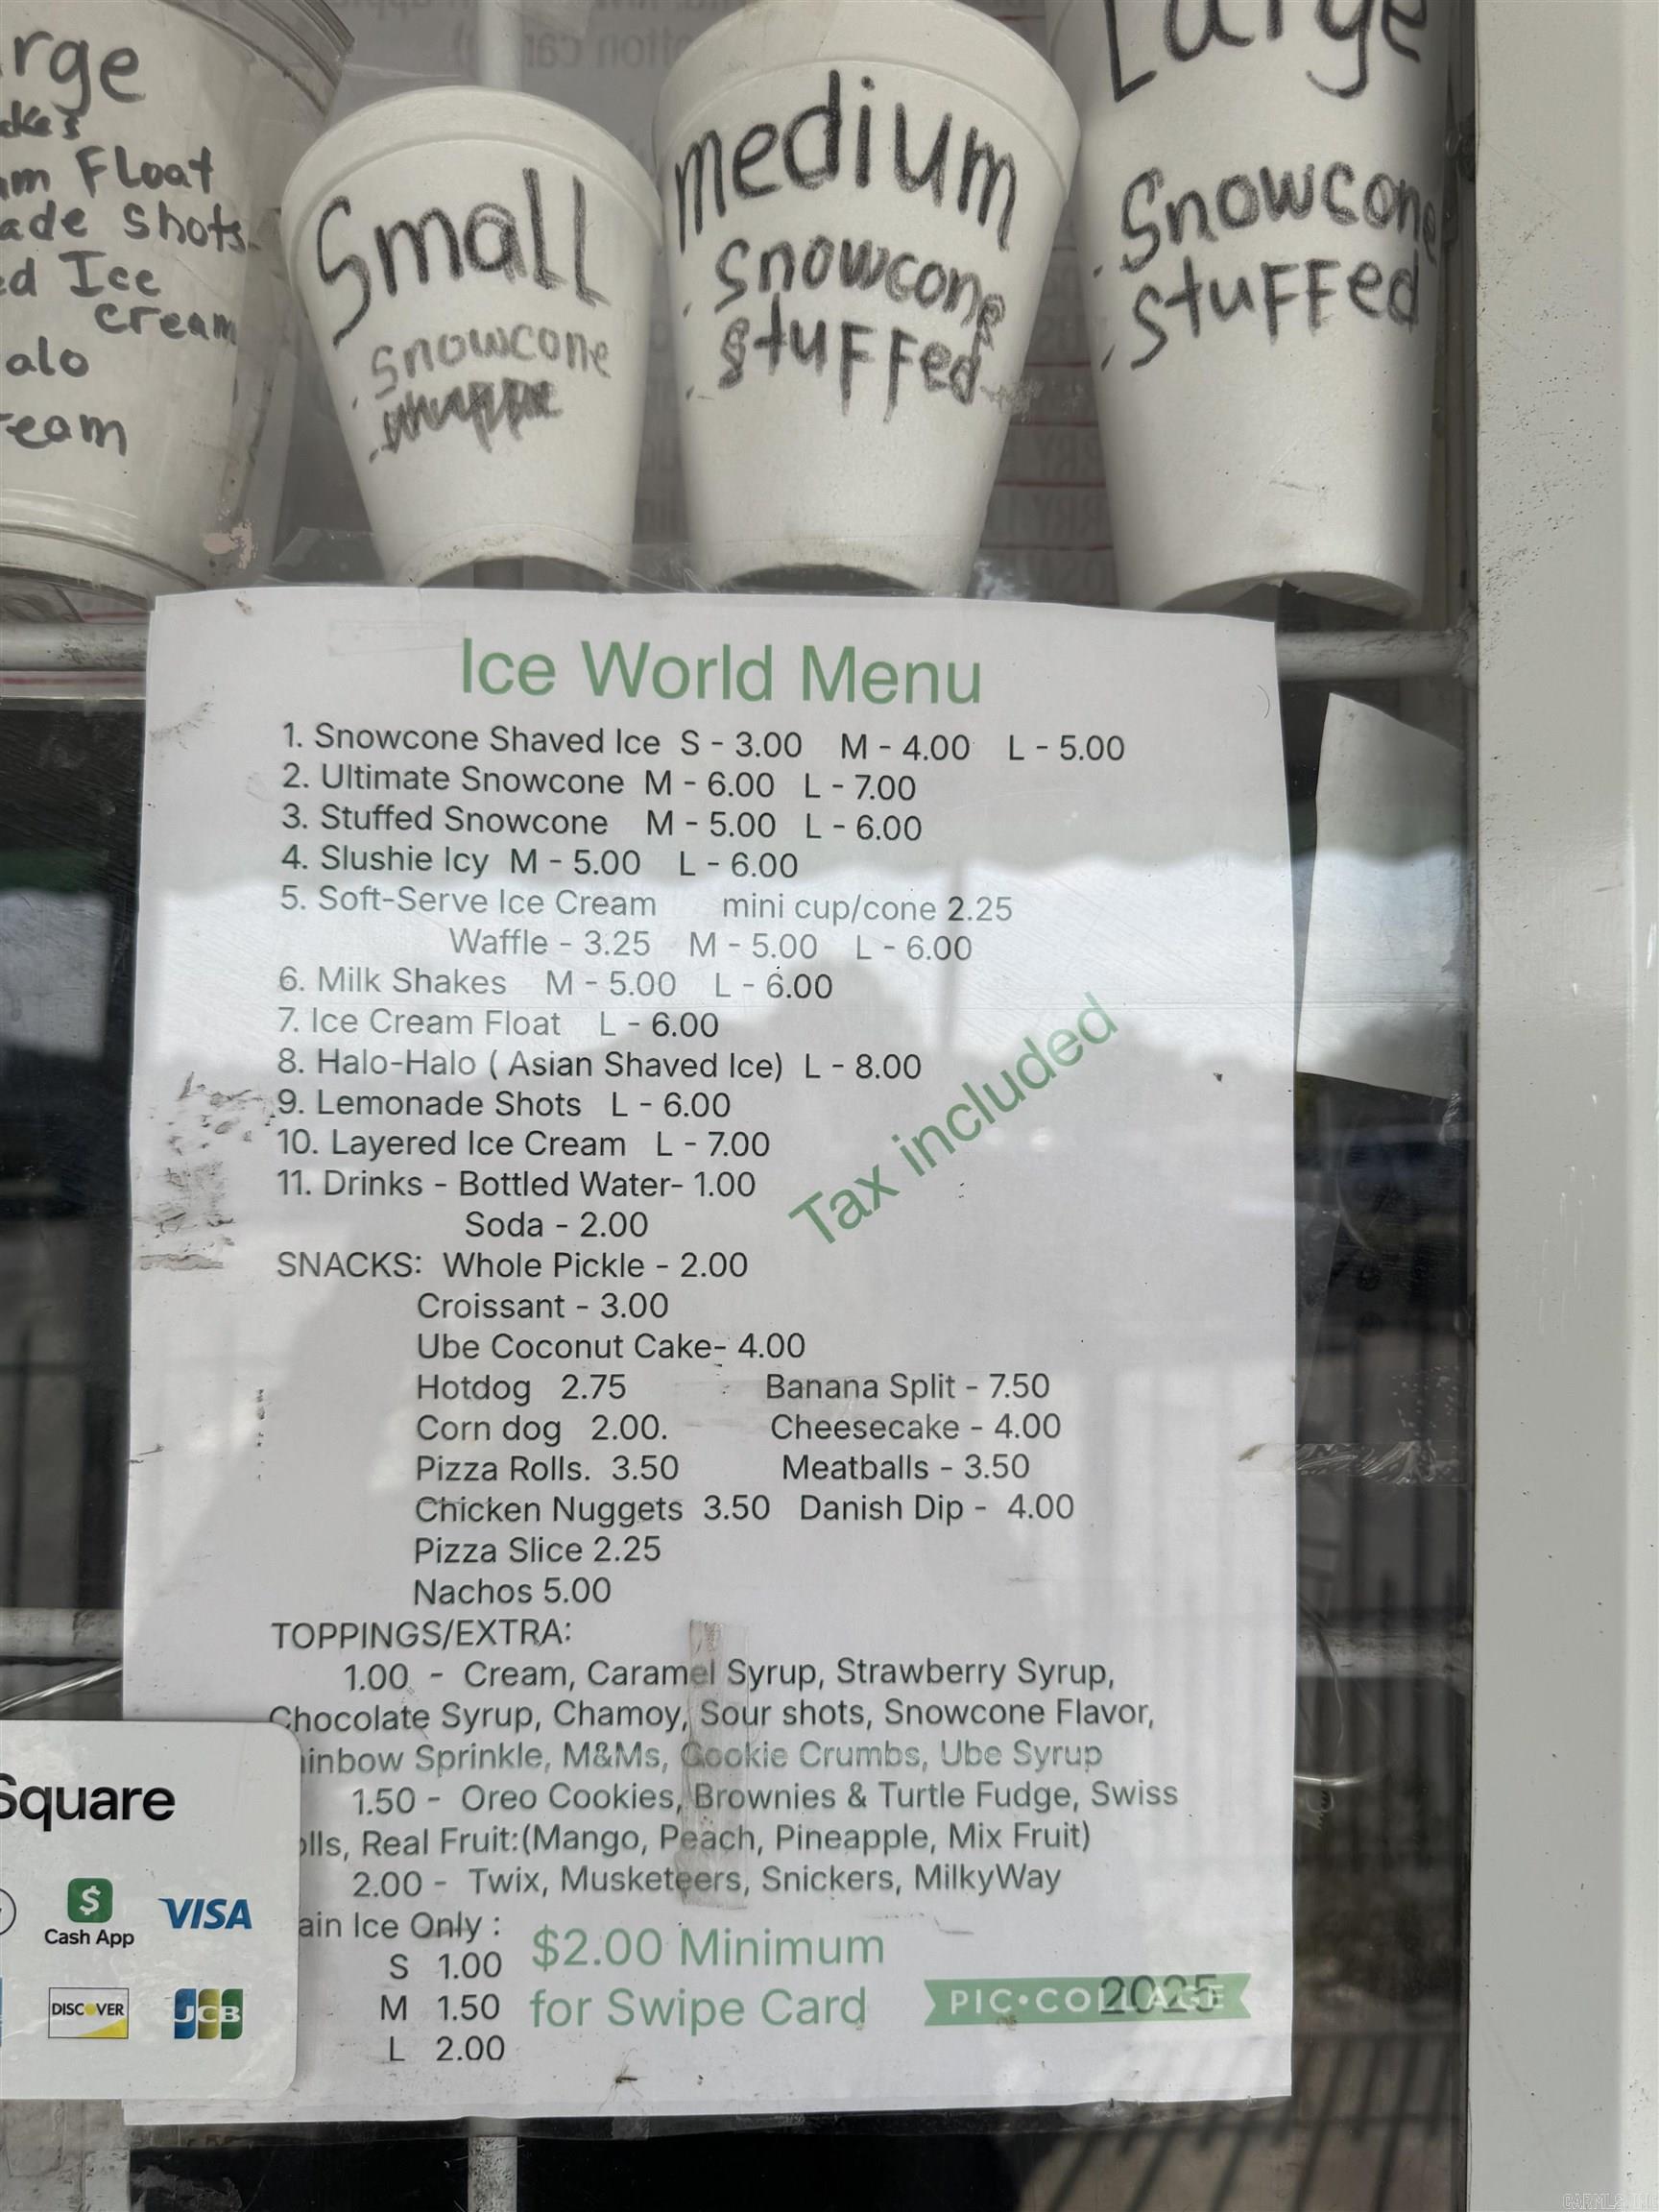 rge
akes
am Float
ade Shots
ed Ice
cream
alo
ream
Small
. Snowcone
medium
. Snowcone
. Stuffed
Large
. Snowcone
. Stuffed
Ice World Menu
1. Snowcone Shaved Ice S - 3.00 M - 4.00 L - 5.00
2. Ultimate Snowcone M - 6.00 L - 7.00
3. Stuffed Snowcone M - 5.00 L - 6.00
4. Slushie Icy M - 5.00 L - 6.00
5. Soft-Serve Ice Cream mini cup/cone 2.25
Waffle - 3.25 M - 5.00 L - 6.00
6. Milk Shakes M - 5.00 L - 6.00
7. Ice Cream Float L - 6.00
8. Halo-Halo ( Asian Shaved Ice) L - 8.00
9. Lemonade Shots L - 6.00
10. Layered Ice Cream L - 7.00
11. Drinks - Bottled Water- 1.00
Soda - 2.00
Tax included
SNACKS: Whole Pickle - 2.00
Croissant - 3.00
Ube Coconut Cake- 4.00
Hotdog 2.75 Banana Split - 7.50
Corn dog 2.00. Cheesecake - 4.00
Pizza Rolls. 3.50 Meatballs - 3.50
Chicken Nuggets 3.50 Danish Dip - 4.00
Pizza Slice 2.25
Nachos 5.00
TOPPINGS/EXTRA:
1.00 - Cream, Caramel Syrup, Strawberry Syrup,
Chocolate Syrup, Chamoy, Sour shots, Snowcone Flavor,
inbow Sprinkle, M&Ms, Cookie Crumbs, Ube Syrup
1.50 - Oreo Cookies, Brownies & Turtle Fudge, Swiss
olls, Real Fruit:(Mango, Peach, Pineapple, Mix Fruit)
2.00 - Twix, Musketeers, Snickers, MilkyWay
ain Ice Only :
S 1.00
M 1.50
L 2.00
$2.00 Minimum
for Swipe Card
PIC•COLLAGE
2025
Square
Cash App
VISA
DISCOVER
JCB